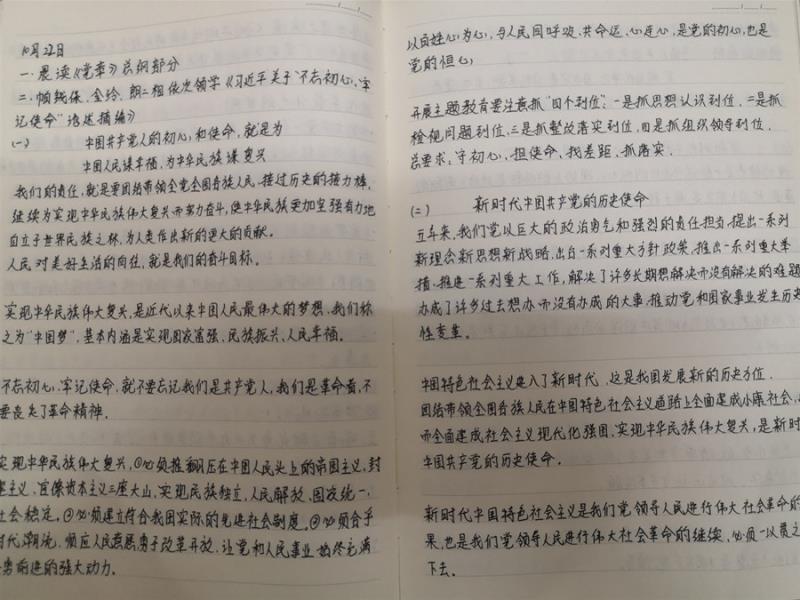 10月22日
一.晨读《党章》总纲部分
二.佩佩、金玲、朗二组依次领学《习近平关于"不忘初心、牢
记使命"论述摘编》
(一) 中国共产党人的初心和使命,就是为
中国人民谋幸福,为中华民族谋复兴
我们的责任,就是要团结带领全党全国各族人民,接过历史的接力棒,
继续为实现中华民族伟大复兴而努力奋斗,使中华民族更加坚强有力地
自立于世界民族之林,为人类作出新的更大的贡献。
人民对美好生活的向往,就是我们的奋斗目标。
实现中华民族伟大复兴,是近代以来中国人民最伟大的梦想,我们称
之为"中国梦",基本内涵是实现国家富强、民族振兴、人民幸福。
不忘初心,牢记使命,就不要忘记我们是共产党人,我们是革命者,不
要丧失了革命精神。
实现中华民族伟大复兴,①必须推翻压在中国人民头上的帝国主义,封
建主义,官僚资本主义三座大山,实现民族独立,人民解放,国家统一,
社会稳定。②必须建立符合我国实际的先进社会制度。③必须合乎
时代潮流,顺应人民意愿,勇于改革开放,让党和人民事业始终充满
奋勇前进的强大动力。
以百姓心为心,与人民同呼吸、共命运、心连心,是党的初心,也是
党的恒心
开展主题教育要注意抓"四个到位":一是抓思想认识到位,二是抓
检视问题到位,三是抓整改落实到位,四是抓组织领导到位.
总要求:守初心,担使命,找差距,抓落实.
(二) 新时代中国共产党的历史使命
五年来,我们党以巨大的政治勇气和强烈的责任担当,提出一系列
新理念新思想新战略,出台一系列重大方针政策,推出一系列重大举
措,推进一系列重大工作,解决了许多长期想解决而没有解决的难题
办成了许多过去想办而没有办成的大事,推动党和国家事业发生历史
性变革。
中国特色社会主义进入了新时代,这是我国发展新的历史方位.
团结带领全国各族人民在中国特色社会主义道路上全面建成小康社会,
而全面建成社会主义现代化强国,实现中华民族伟大复兴,是新时
中国共产党的历史使命.
新时代中国特色社会主义是我们党领导人民进行伟大社会革命的
果,也是我们党领导人民进行伟大社会革命的继续,必须一以贯之
下去。